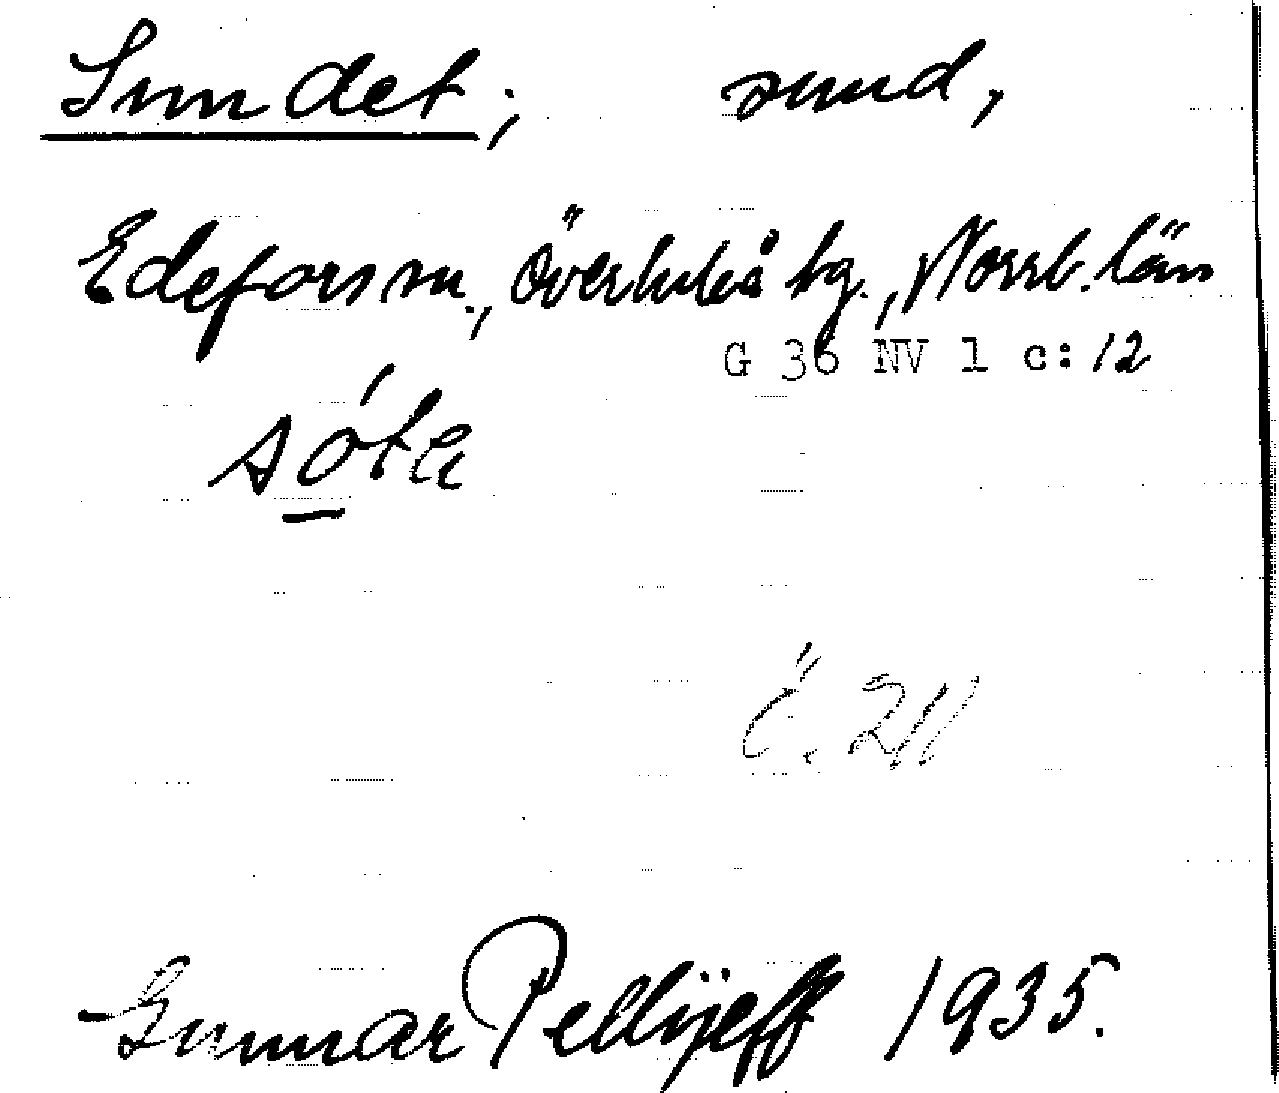 Sundet; sund,
Edefors sn., Överluleå tg., Norrb. län
G 36 NV 1 c: 12
Gunnar Pellijeff 1935.